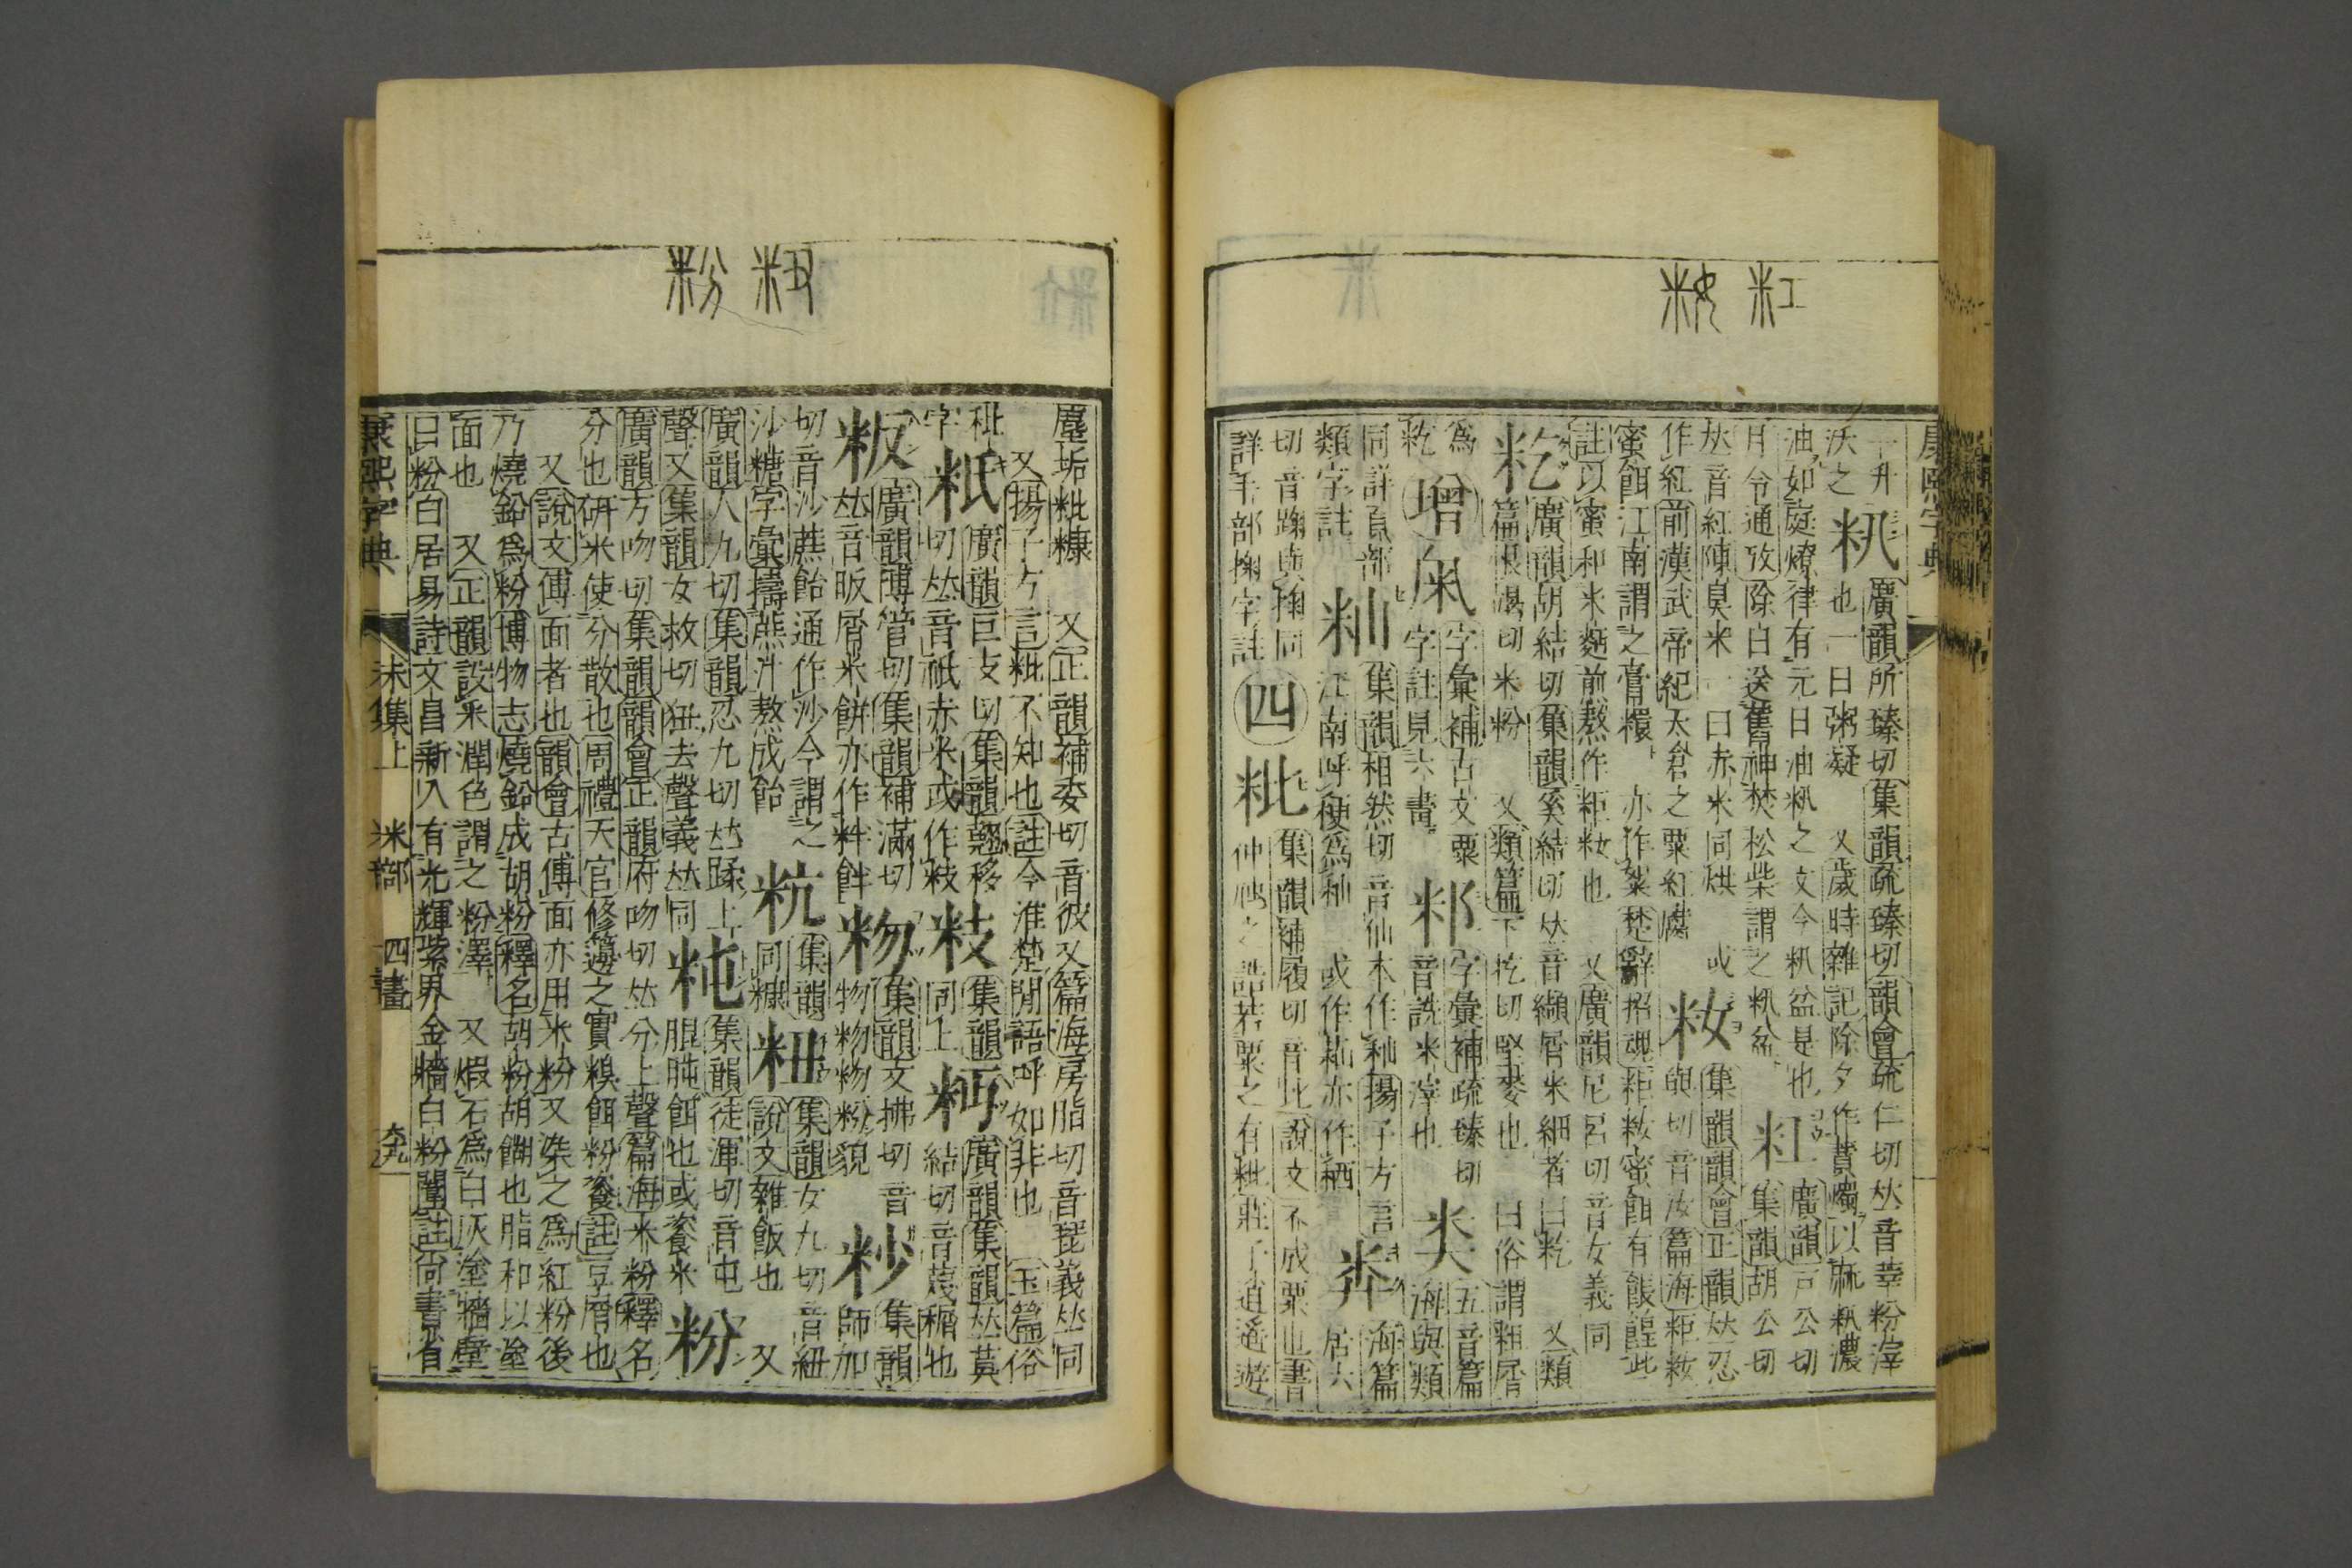 籹 粀
康熙字典
十升
沃之 籸 廣韻所臻切集韻疏臻切韻會疏仁切𠀤音莘粉滓
也一曰粥凝 又歲時雜記除夕作蕡燭以麻籸濃
油如庭燎律有元日油籸之文今籸盆是也 粀 廣韻戸公切
月令通攷除白送舊神焚松柴謂之籸盆 集韻胡公切
𠀤音紅陳臭米一曰赤米同烘 或
作紅前漢武帝紀太倉之粟紅腐 籹 集韻韻會正韻𠀤忍與切音汝篇海粔籹
蜜餌江南謂之膏糫 亦作䊆楚辭招魂粔籹蜜餌有餦餭此
註以蜜和米麪煎熬作粔籹也 又廣韻尼呂切音女義同
籺 廣韻胡結切集韻奚結切𠀤音纈屑米細者曰籺 又類
篇恨竭切米粉 又類篇下扢切堅麥也一曰俗謂粗屑
爲籺 增 字彙補古文粟字註見六書
字彙補疏臻切音詵米滓也
五音篇海與類
同詳頁部
類字註 籼 集韻相然切音仙本作秈揚子方言
江南呼粳爲籼 或作𥝩亦作粞
海篇居六
切音踘與掬同
詳手部掬字註 四 粃 集韻補履切音比說文不成粟也書
仲虺之誥若粟之有粃莊子逍遙遊
粉 粈
塵垢粃糠 又正韻補委切音彼又篇海房脂切音毘義𠀤同
又揚子方言粃不知也註今淮楚閒語呼如非也 玉篇俗
秕字 粖 廣韻巨支切集韻翹移切𠀤音祇赤米或作䊼
集韻同上
廣韻集韻𠀤莫結切音蔑糏也
粄 廣韻博管切集韻補滿切
𠀤音昄屑米餅亦作䉽䬳
粅 集韻文拂切音物粅粅粉貌
粆 集韻師加
切音沙蔗飴通作沙今謂之
沙糖字彙擣蔗汁熬成飴 粇 集韻同糠 粈 集韻女九切音紐
說文雜飯也 又
廣韻人九切集韻忍九切𠀤蹂上
聲又集韻女救切狃去聲義𠀤同 集韻徒渾切音屯
䐊肫餌也或䬴米 粉
廣韻方吻切集韻韻會正韻府吻切𠀤分上聲篇海米粉釋名
分也研米使分散也周禮天官修籩之實糗餌粉餈註豆屑也
又說文傅面者也韻會古傅面亦用米粉又染之爲紅粉後
乃燒鉛爲粉博物志燒鉛成胡粉釋名胡粉胡餬也脂和以塗
面也 又正韻設采潤色謂之粉澤 又煆石爲白灰塗牆壁
曰粉白居易詩文昌新入有光輝紫界金牆白粉闈註尚書省
康熙字典 未集上 米部 四畫